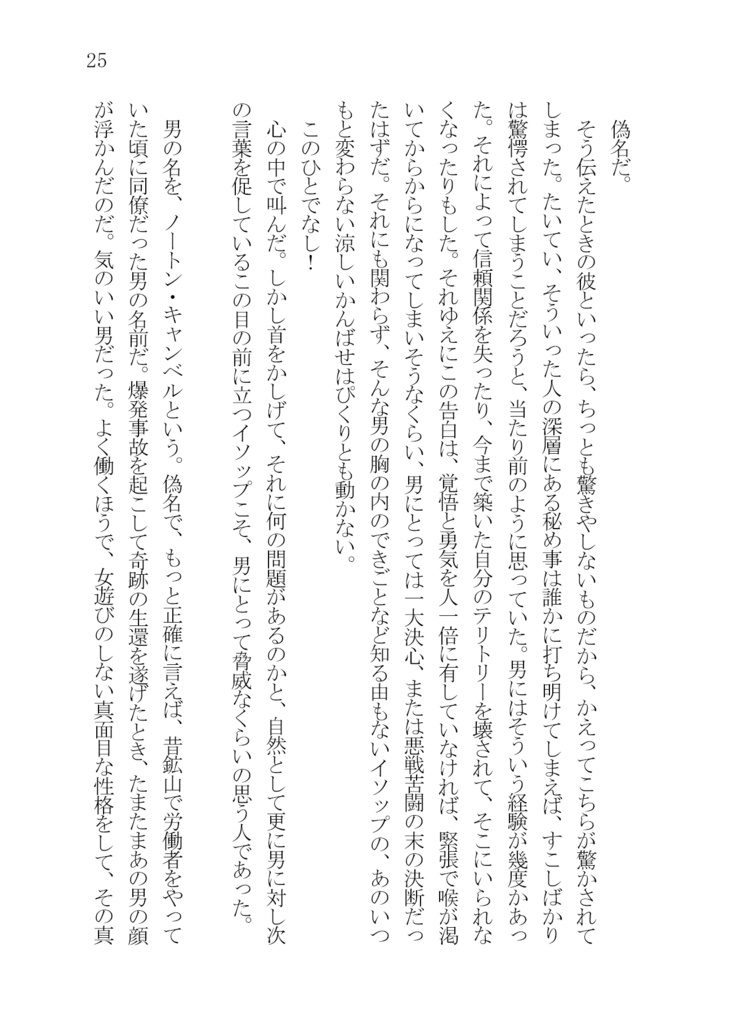 25
偽名だ。
そう伝えたときの彼といったら、ちっとも驚きやしないものだから、かえってこちらが驚かされて
しまった。たいてい、そういった人の深層にある秘め事は誰かに打ち明けてしまえば、すこしばかり
は驚愕されてしまうことだろうと、当たり前のように思っていた。男にはそういう経験が幾度かあっ
た。それによって信頼関係を失ったり、今まで築いた自分のテリトリーを壊されて、そこにいられな
くなったりもした。それゆえにこの告白は、覚悟と勇気を人一倍に有していなければ、緊張で喉が渇
いてからからになってしまいそうなくらい、男にとっては一大決心、または悪戦苦闘の末の決断だっ
たはずだ。それにも関わらず、そんな男の胸の内のできごとなど知る由もないイソップの、あのいつ
もと変わらない涼しいかんばせはぴくりとも動かない。
このひとでなし！
心の中で叫んだ。しかし首をかしげて、それに何の問題があるのかと、自然として更に男に対し次
の言葉を促しているこの目の前に立つイソップこそ、男にとって脅威なくらいの思う人であった。
男の名を、ノートン・キャンベルという。偽名で、もっと正確に言えば、昔鉱山で労働者をやって
いた頃に同僚だった男の名前だ。爆発事故を起こして奇跡の生還を遂げたとき、たまたまあの男の顔
が浮かんだのだ。気のいい男だった。よく働くほうで、女遊びのしない真面目な性格をして、その真